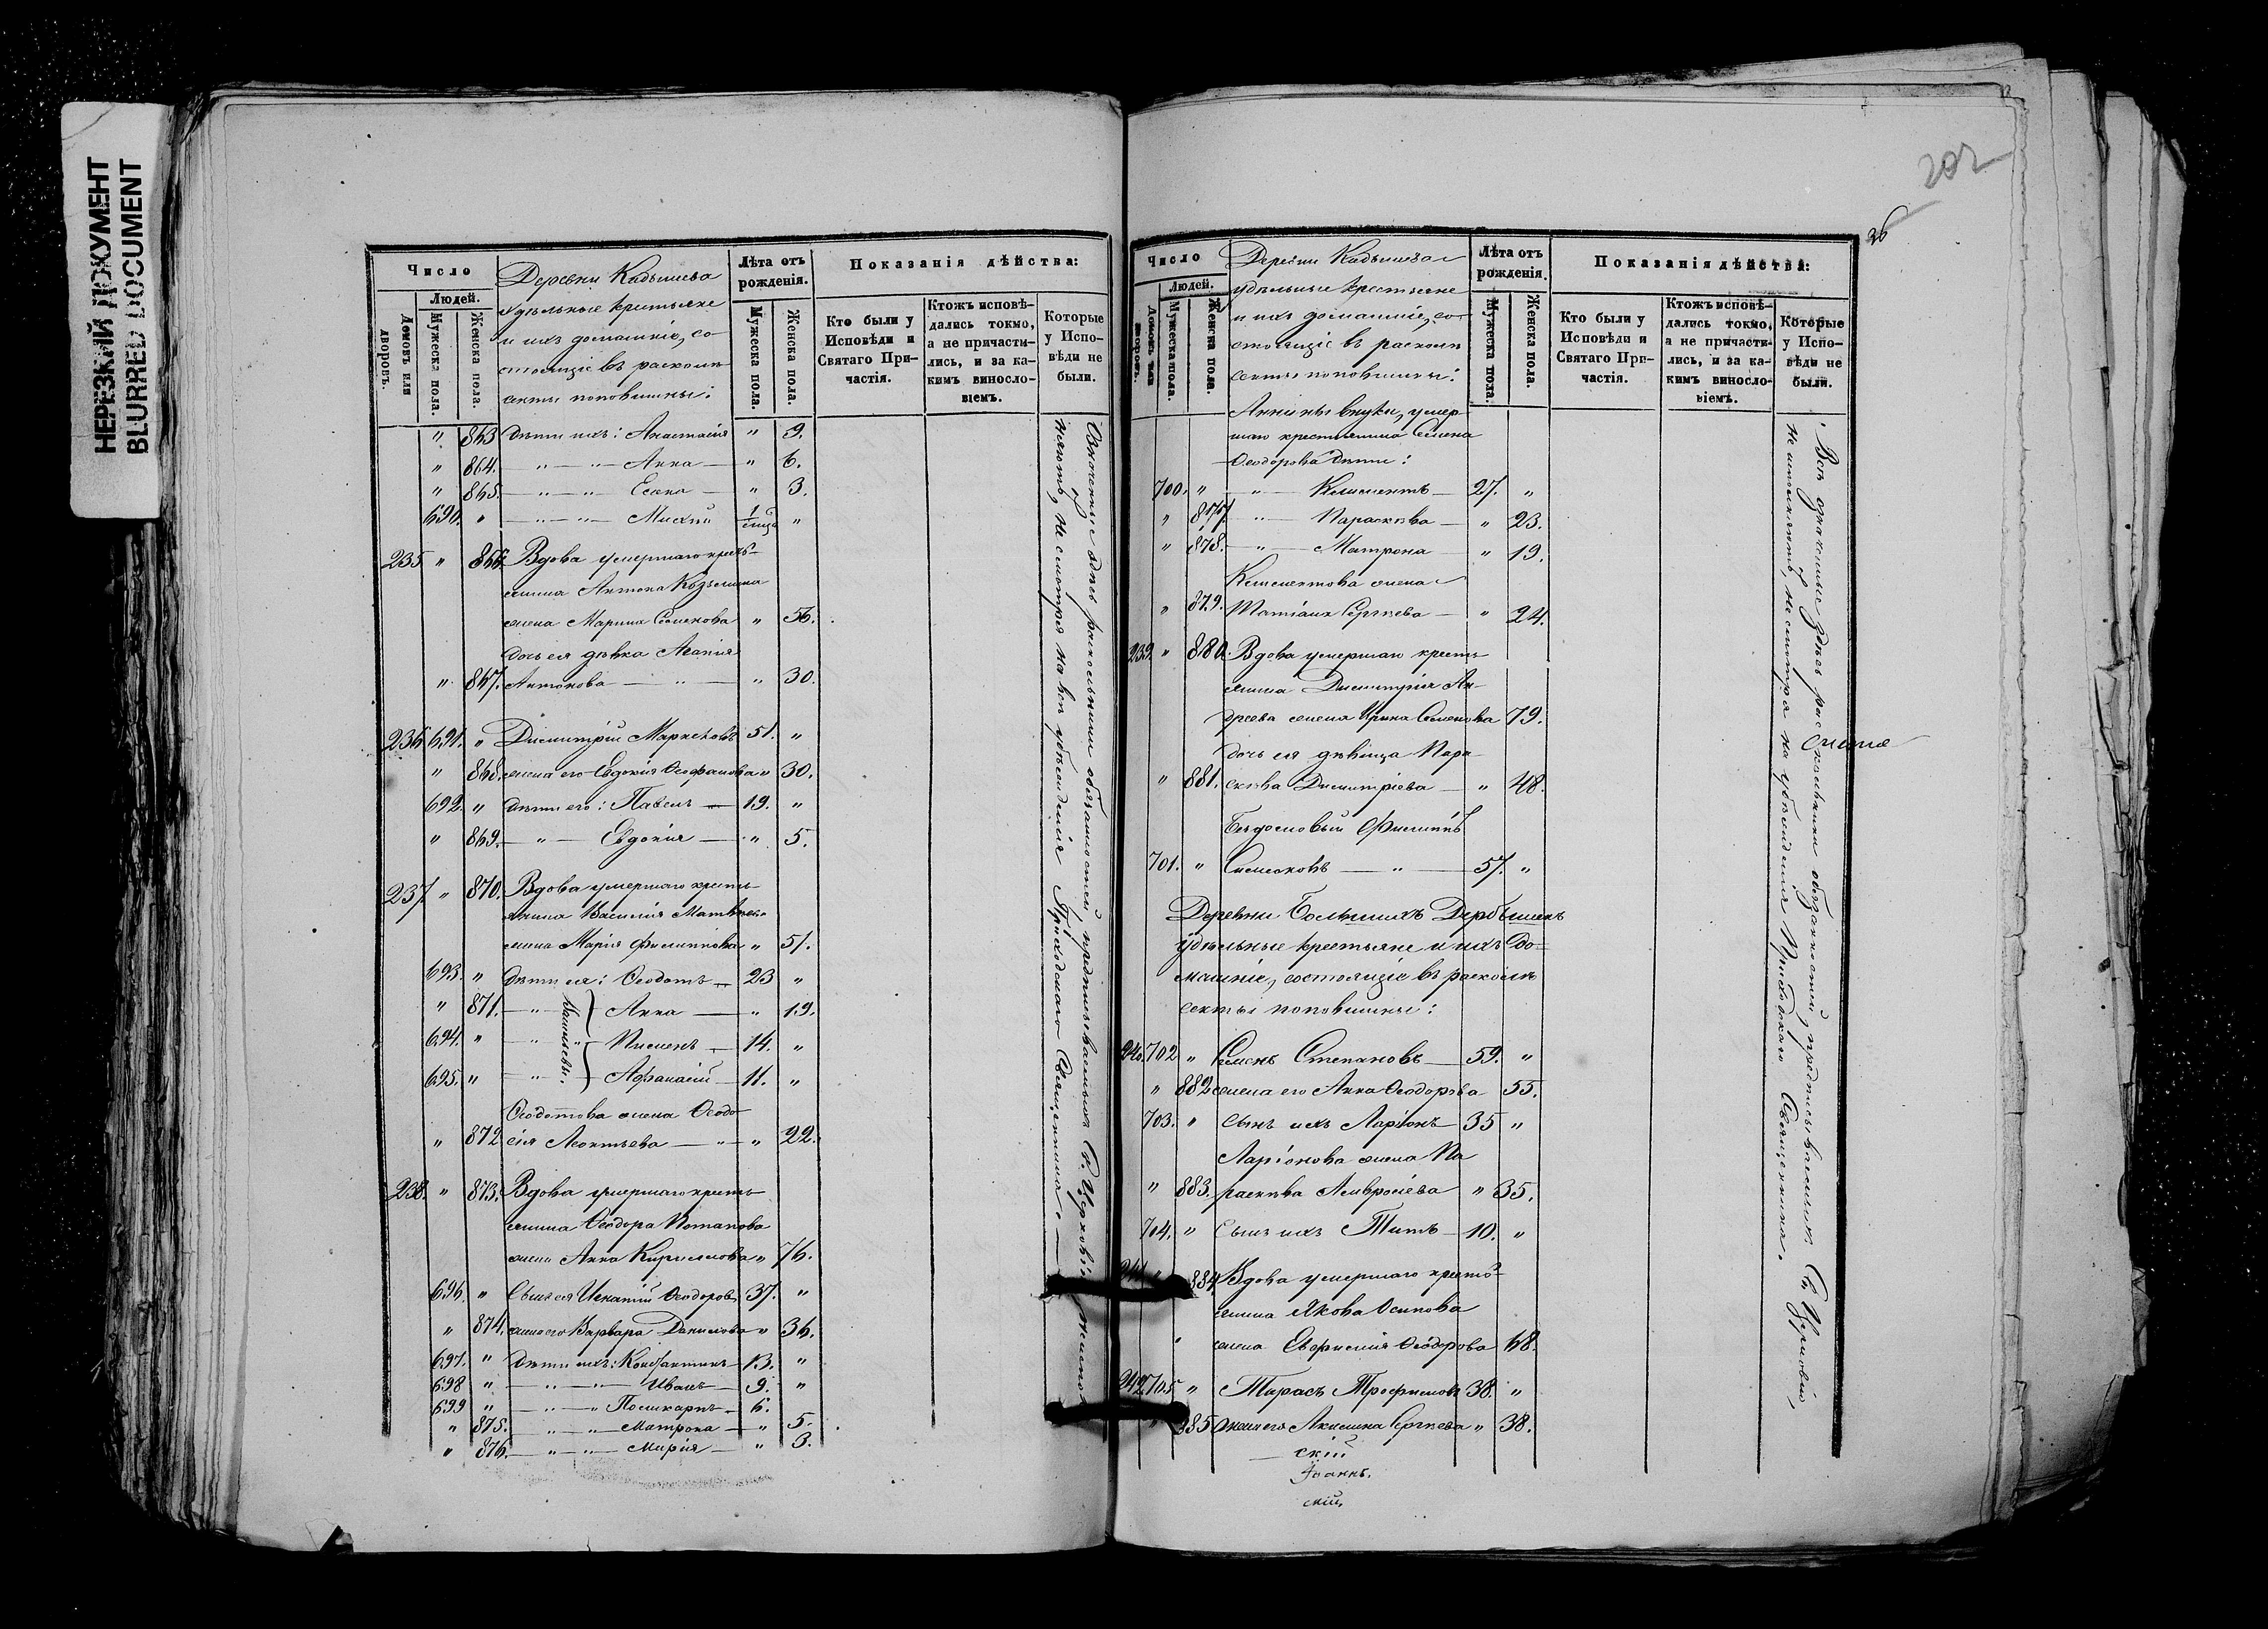 НЕРЕЗКИЙ ДОКУМЕНТ
BLURRED DOCUMENT
Число
Людей.
Домовъ или дворовъ.
Мужеска пола.
Женска пола.
Деревни Кадышева
удѣльные крестьяне
и ихъ домашніе, со-
стоящіе въ расколѣ
секты поповщины:
Лѣта отъ рожденія.
Мужеска пола.
Женска пола.
Показанія дѣйства:
Кто были у Исповѣди и Святаго При-частія.
Ктожъ исповѣ-дались токмо, а не причасти-лись, и за ка-кимъ винословіемъ.
Которые у Испо-вѣди не были.
" 863 Дѣти ихъ: Анастасія " 9.
" 864. " " Анна " 6.
" 865. " " Елена " 3.
690. " " "
235 " 866. Вдова умершаго кресть-
янина Антона Козьмина
жена Марина Семенова " 56.
дочь ея дѣвка Агапія
" 867. Антонова " " 30.
236 691. " Димитрій Марк 51. "
" 868. жена его Евдокія Ѳеофанова " 30.
692. " дѣти его: Павелъ 19. "
" 869. " Евдокія " 5.
237. " 870. Вдова умершаго кресть-
янина Василія Матвѣева
жена Марія Филиппова " 51.
693. " дѣти ея: Ѳеодотъ 23 "
" 871. " Анна " 19.
694. " " Пименъ 14. "
695. " " Афанасій 11. "
Васильевы.
Ѳеодотова жена Ѳеодо
" 872 сія Леонтьева " " 22.
238. " 873. Вдова умершаго кресть-
янина Ѳеодора Потапова
жена Анна Кириллова " 76.
696. " Сынъ ея Игнатій Ѳеодоровъ 37. "
" 874. жена его Варвара Данилова " 36.
697. " Дѣти ихъ: Константинъ 13. "
698 " " " Иванъ 9. "
699 " " " Поликарпъ 6.
" 875. " " Матрона " 5.
" 876. " " Марія " 3.
Означенные здѣсь раскольники обязанностей, предписываемыхъ Св. Церковію, не
несмотря на всѣ убѣжденія Приходскаго Священника.
202
26
Число
Людей.
Домовъ или дворовъ.
Мужеска пола.
Женска пола.
Деревни Кадышева
удѣльные крестьяне
и ихъ домашніе, со-
стоящіе въ расколѣ
секты поповщины:
Лѣта отъ рожденія.
Мужеска пола.
Женска пола.
Показанія дѣйства:
Кто были у Исповѣди и Святаго При-частія.
Ктожъ исповѣ-дались токмо, а не причасти-лись, и за ка-кимъ винословіемъ.
Которые у Испо-вѣди не были.
Аннины внуки, умер-
шаго крестьянина Семена
Ѳеодорова дѣти:
700. " " Климентъ 27. "
" 877. " Параскева " 23.
" 878. " Матрона " 19.
Климентова жена
" 879. Татіана Сергѣева " 24.
239. " 880. Вдова умершаго кресть
янина Димитрія Ан-
дреева жена Ирина Семенова 79.
дочь ея дѣвица Пара
" 881. скева Димитріева " 48.
Бездомовый Филиппъ
701. " Симеоновъ " 57. "
Деревни Большихъ Дербышекъ
удѣльные крестьяне и ихъ до-
машніе, состоящіе въ расколѣ
секты поповщины:
240. 702 " Семенъ Степановъ 59. "
" 882 жена его Анна Ѳеодорова 55.
703. " Сынъ ихъ Ларіонъ 35 "
Ларіонова жена Па
" 883. раскева Амвросіева " 35.
704. " Сынъ ихъ Титъ 10. "
241 " 884 Вдова умершаго кресть-
янина Якова Осипова
жена Евфимія Ѳеодорова 68.
242 705 " Тарасъ Трофимовъ 38. "
" 885 жена его Акилина Сергѣева " 38.
скій
Іоаннъ.
Всѣ означенные здѣсь раскольники обязанностей, предписываемыхъ Св. Церковію,
не исполняютъ, несмотря на убѣжденія Приходскаго Священника.